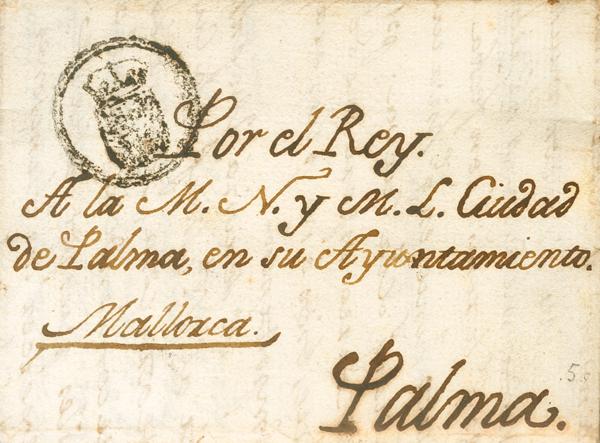 Por el Rey.
A la M. N. y M. L. Ciudad
de Palma, en su Ayuntamiento.
Mallorca.
Palma.